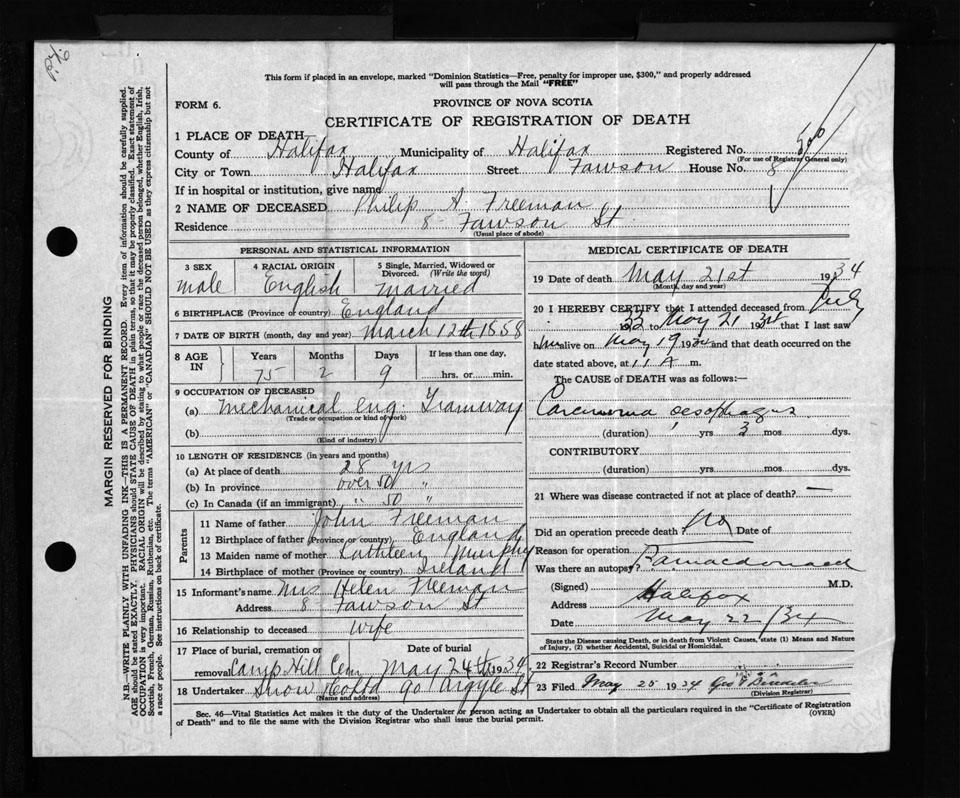 P.76
This form if placed in an envelope, marked "Dominion Statistics—Free, penalty for improper use, $300," and properly addressed
will pass through the Mail "FREE"
FORM 6.
PROVINCE OF NOVA SCOTIA
CERTIFICATE OF REGISTRATION OF DEATH
1 PLACE OF DEATH
County of Halifax Municipality of Halifax Registered No.
(For use of Registrar General only)
City or Town Halifax Street Fawson House No. 8
If in hospital or institution, give name
2 NAME OF DECEASED Philip A. Freeman
Residence 8 Fawson St
(Usual place of abode)
PERSONAL AND STATISTICAL INFORMATION
3 SEX male
4 RACIAL ORIGIN English
5 Single, Married, Widowed or Divorced. (Write the word) married
6 BIRTHPLACE (Province or country) England
7 DATE OF BIRTH (month, day and year) March 12th 1858
8 AGE IN Years 75 Months 2 Days 9 If less than one day, hrs. or min.
9 OCCUPATION OF DECEASED
(a) mechanical eng. Tramway
(Trade or occupation or kind of work)
(b)
(Kind of industry)
10 LENGTH OF RESIDENCE (in years and months)
(a) At place of death 28 yrs
(b) In province over 50 "
(c) In Canada (if an immigrant) " 50 "
Parents
11 Name of father John Freeman
12 Birthplace of father (Province or country) England
13 Maiden name of mother Kathleen Murphy
14 Birthplace of mother (Province or country) Ireland
15 Informant's name Mrs Helen Freeman
Address 8 Fawson St
16 Relationship to deceased wife
17 Place of burial, cremation or removal Camp Hill Cem Date of burial May 24th 1934
18 Undertaker Snow Co Ltd 90 Argyle St
(Name and address)
MEDICAL CERTIFICATE OF DEATH
19 Date of death May 21st 1934
(Month, day and year)
20 I HEREBY CERTIFY that I attended deceased from July
33 to May 21 1934 that I last saw
him alive on May 19 1934 and that death occurred on the
date stated above, at 11 A m.
The CAUSE OF DEATH was as follows:—
Carcinoma oesophagus
(duration) yrs 3 mos dys.
CONTRIBUTORY
(duration) yrs mos dys.
21 Where was disease contracted if not at place of death? —
Did an operation precede death? No Date of
Reason for operation
Was there an autopsy?
(Signed) M.D.
Address Halifax
Date May 22/34
State the Disease causing Death, or in death from Violent Causes, state (1) Means and Nature
of Injury, (2) whether Accidental, Suicidal or Homicidal.
22 Registrar's Record Number
23 Filed May 25 1934
(Division Registrar)
Sec. 46—Vital Statistics Act makes it the duty of the Undertaker or person acting as Undertaker to obtain all the particulars required in the "Certificate of Registration
of Death" and to file the same with the Division Registrar who shall issue the burial permit.
(OVER)
MARGIN RESERVED FOR BINDING
N.B.—WRITE PLAINLY WITH UNFADING INK—THIS IS A PERMANENT RECORD. Every item of information should be carefully supplied.
AGE should be stated EXACTLY. PHYSICIANS should STATE CAUSE OF DEATH in plain terms, so that it may be properly classified. Exact statement of
OCCUPATION is very important. RACIAL ORIGIN will be described by stating to what people or race the deceased person belonged, whether English, Irish,
Scottish, French, German, Russian, Ruthenian, etc. The terms "AMERICAN" or "CANADIAN" SHOULD NOT BE USED as they express citizenship but not
a race or people. See instructions on back of certificate.